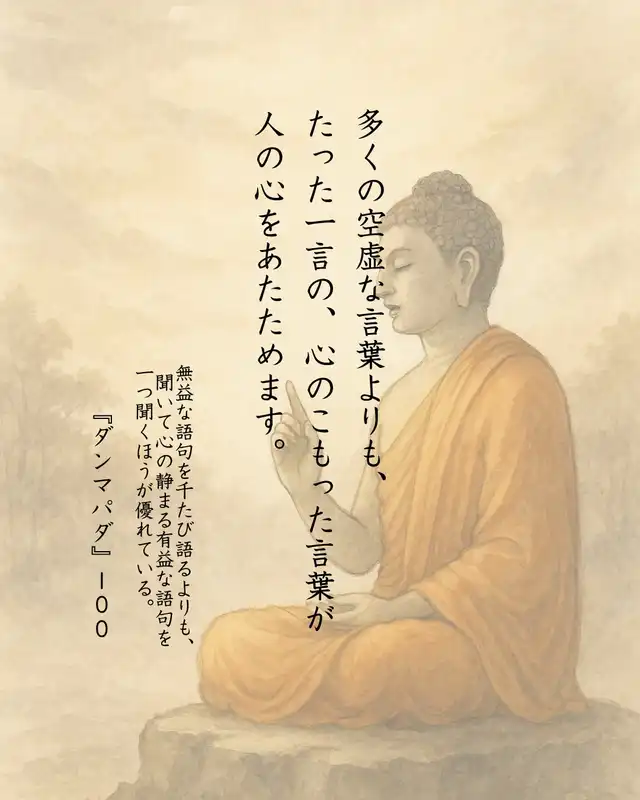 多くの空虚な言葉よりも、
たった一言の、心のこもった言葉が
人の心をあたためます。
無益な語句を千たび語るよりも、
聞いて心の静まる有益な語句を
一つ聞くほうが優れている。
『ダンマパダ』一〇〇